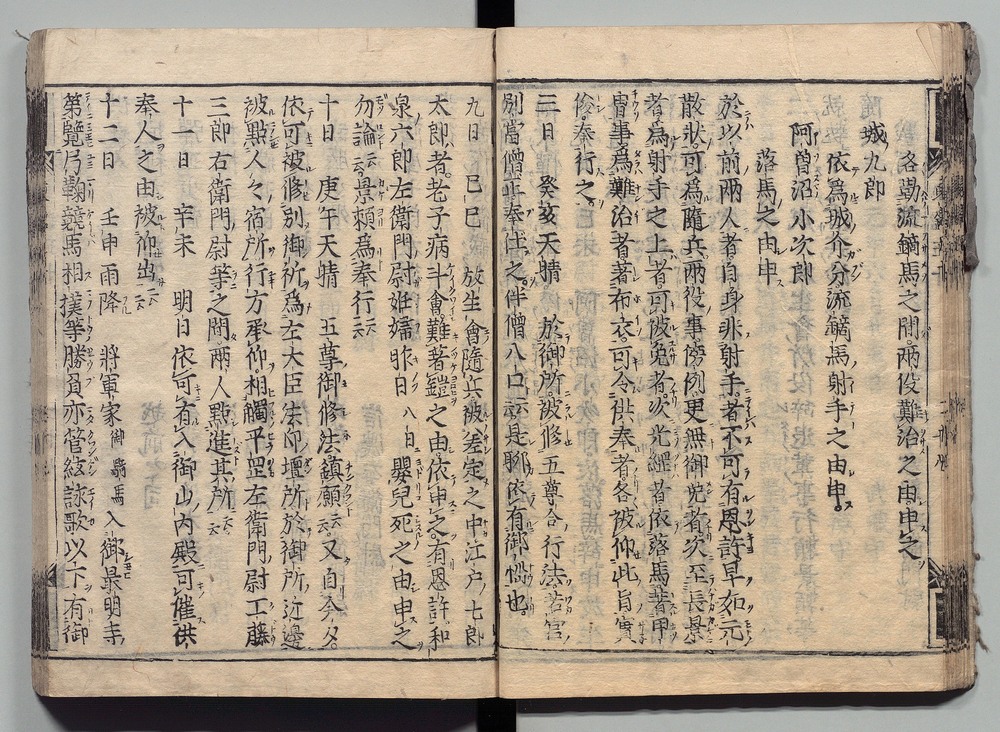 各勤流鏑馬之間両役難治之由申之
城九郎
依為城介分流鏑馬射手之由申
阿曽沼小次郎
落馬之由申
於以前兩人者自身非射手者不可有恩許早如元
散状可為隨兵兩役事傍例更無御免者次至長景
者為射手之上者可被免者次光綱者依落馬著甲
冑事為難治者著布衣可令供奉者各被仰此旨實
俊奉行之
三日 癸亥天晴 於御所被修五尊合行法若宮
別當僧正奉仕之伴僧八口云云是聊依有御惱也
九日 己巳 放生會隨兵被差定之中江戸七郎
太郎者老子病計會難著鎧之由依申之有恩許和
泉六郎左衛門尉姙婦昨日八日嬰兒死之由申之
勿論云云景頼為奉行云云
十日 庚午天晴 五尊御修法鎮願云云又自今夕
依可被修別御祈為左大臣法印壇所於御所近邊
被點人々宿所行方承仰相觸平罡左衛門尉工藤
三郎右衛門尉等之間兩人點進其所云云
十一日 辛未 明日依可有入御山内殿可催供
奉人之由被仰出云云
十二日 壬申雨降 將軍家御騎馬入御最明寺
第覽乃鞠競馬相撲等勝負亦管絃詠歌以下有御